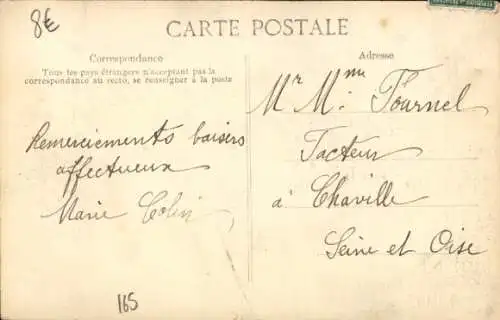 8€
CARTE POSTALE
Correspondance
Tous les pays étrangers n'acceptant pas la
correspondance au recto, se renseigner à la poste
Remerciements baisers
affectueux
Marie Colin
165
Adresse
Mr Mme Tournel
Facteur
à Chaville
Seine et Oise